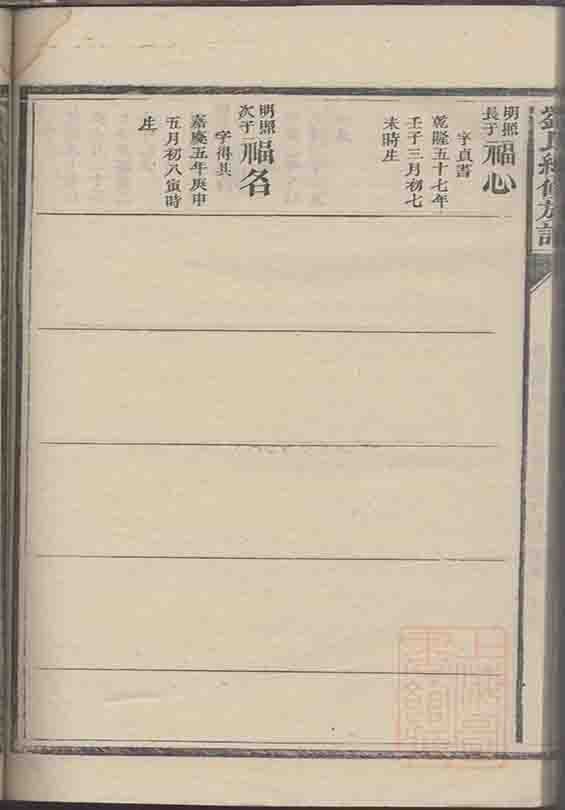 氏續修族譜
明照
長子福心
字貞書
乾隆五十七年
壬子三月初七
未時生
明照
次子福名
字得其
嘉慶五年庚申
五月初八寅時
生